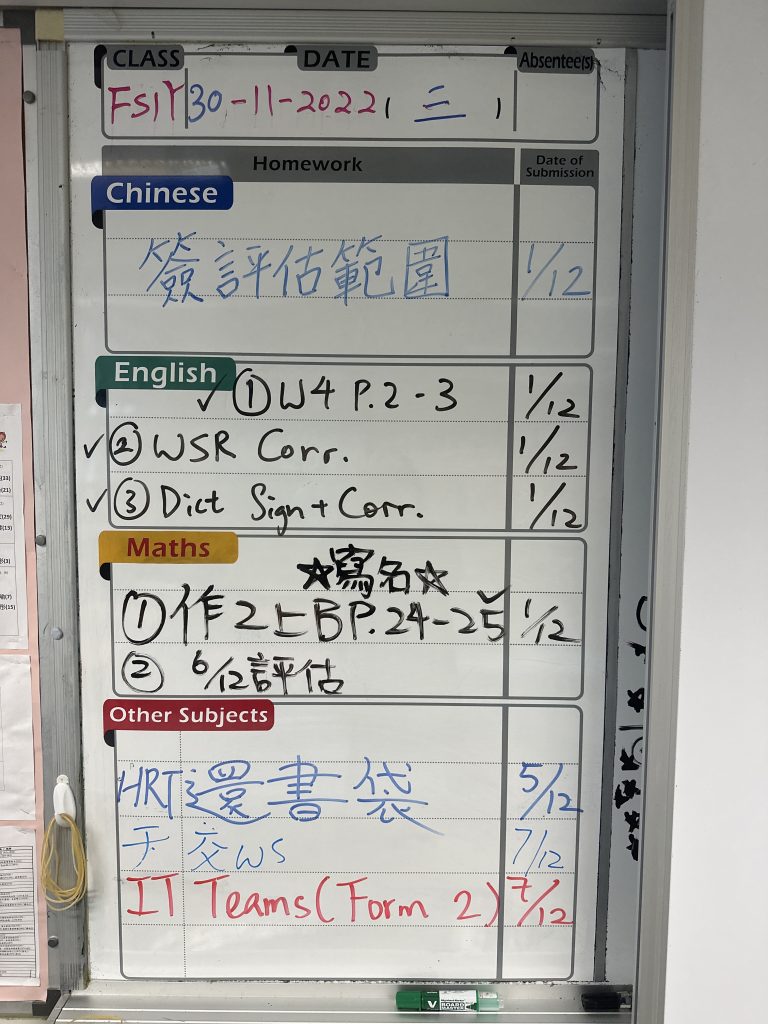 CLASS DATE Absentee(s)
30-11-2022 ( 三 )
Homework Date of Submission
Chinese
簽評估範圍 1/12
English
✓ ① W4 P.2-3 1/12
✓ ② WSR Corr. 1/12
✓ ③ Dict Sign + Corr. 1/12
Maths
☆寫名☆
① 作2上B P.24-25 1/12
② 6/12 評估
Other Subjects
HRT 還書袋 5/12
交WS 7/12
IT Teams (Form 2) 7/12
V BOARD MASTER